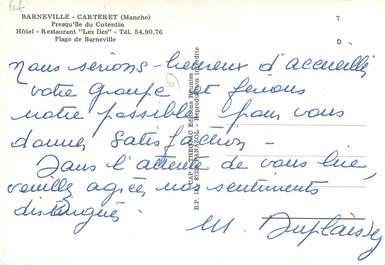 BARNEVILLE - CARTERET (Manche)
Presqu'île du Cotentin
Hôtel - Restaurant "Les Iles" - Tél. 54.90.76
Plage de Barneville
7
D
Nous serions heureux d'accueillir
votre groupe et ferions
notre possible pour vous
donner satisfaction -
Dans l'attente de vous lire,
veuillez agréer nos sentiments
distingués.
M.